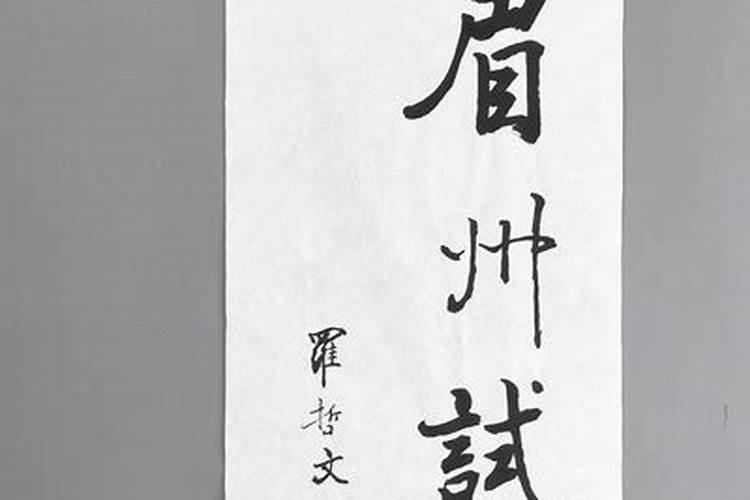 眉州試
羅哲文